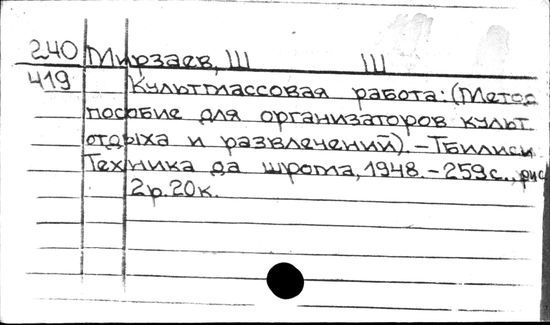 240 Мирзаев, Ш Ш
419 Культмассовая работа: (Метод
пособие для организаторов культ
отдыха и развлечений). – Тбилиси
Техника да шрома, 1948. – 259с., рис
2р.20к.